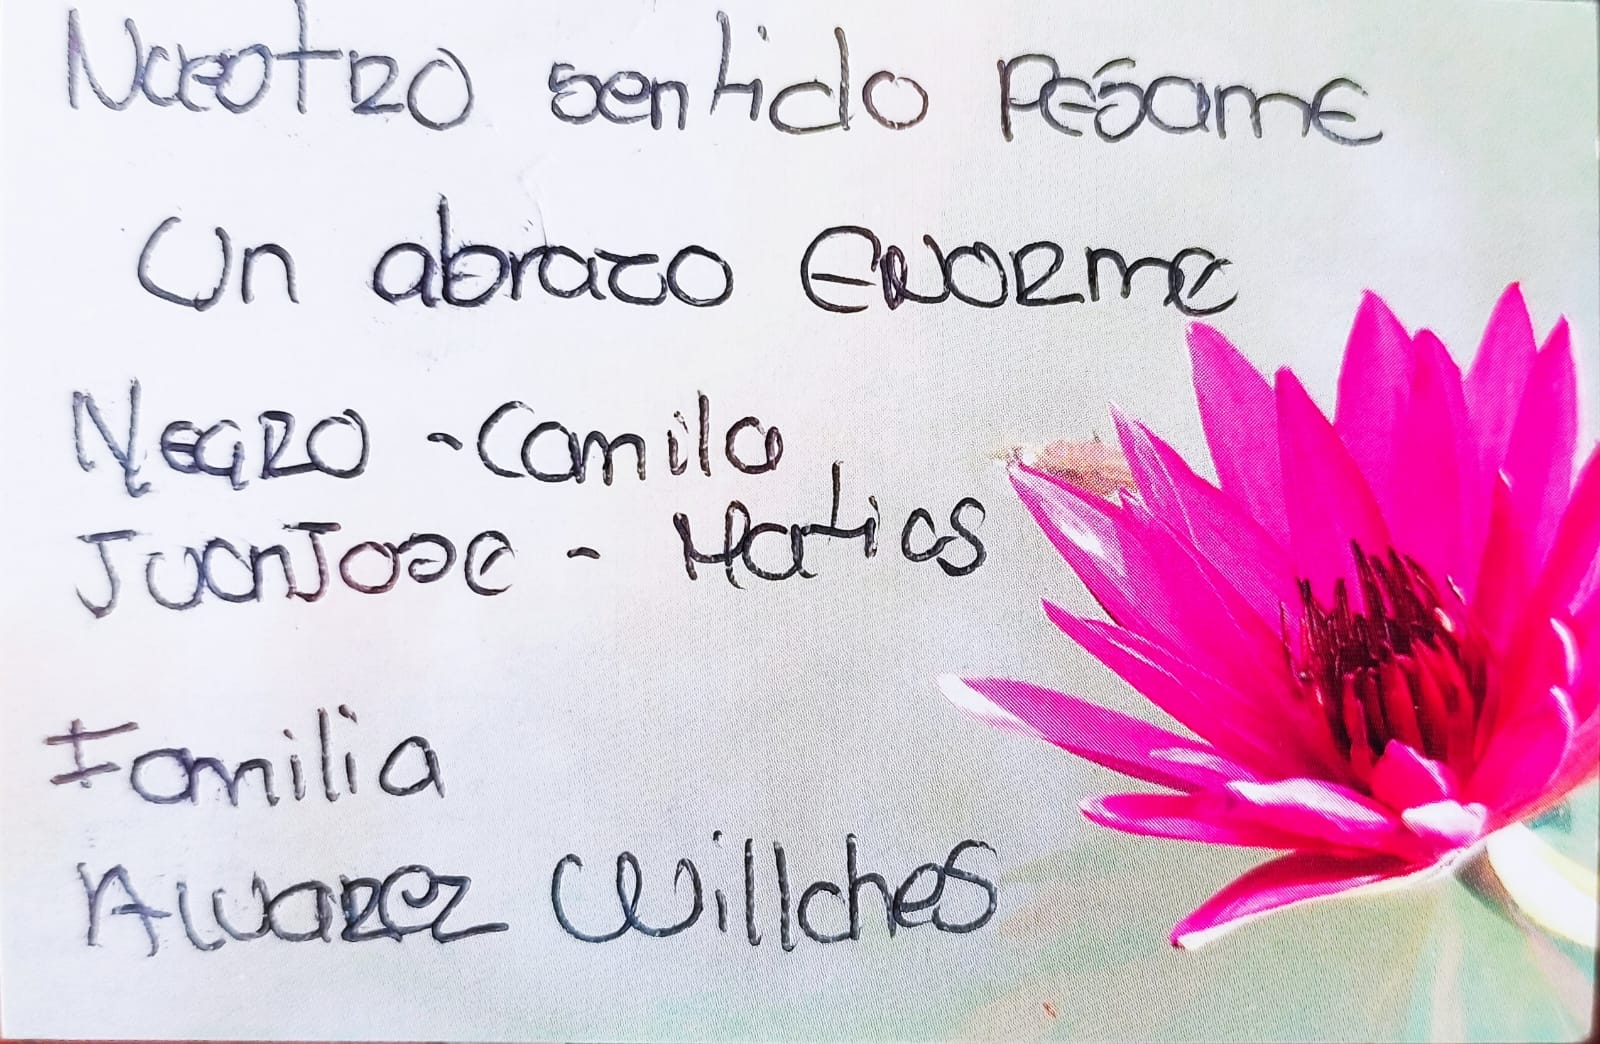 Nuestro sentido Pésame
Un abrazo Enorme
Negro - Camila
Juan Jose - Matias
Familia
Alvarez Willches